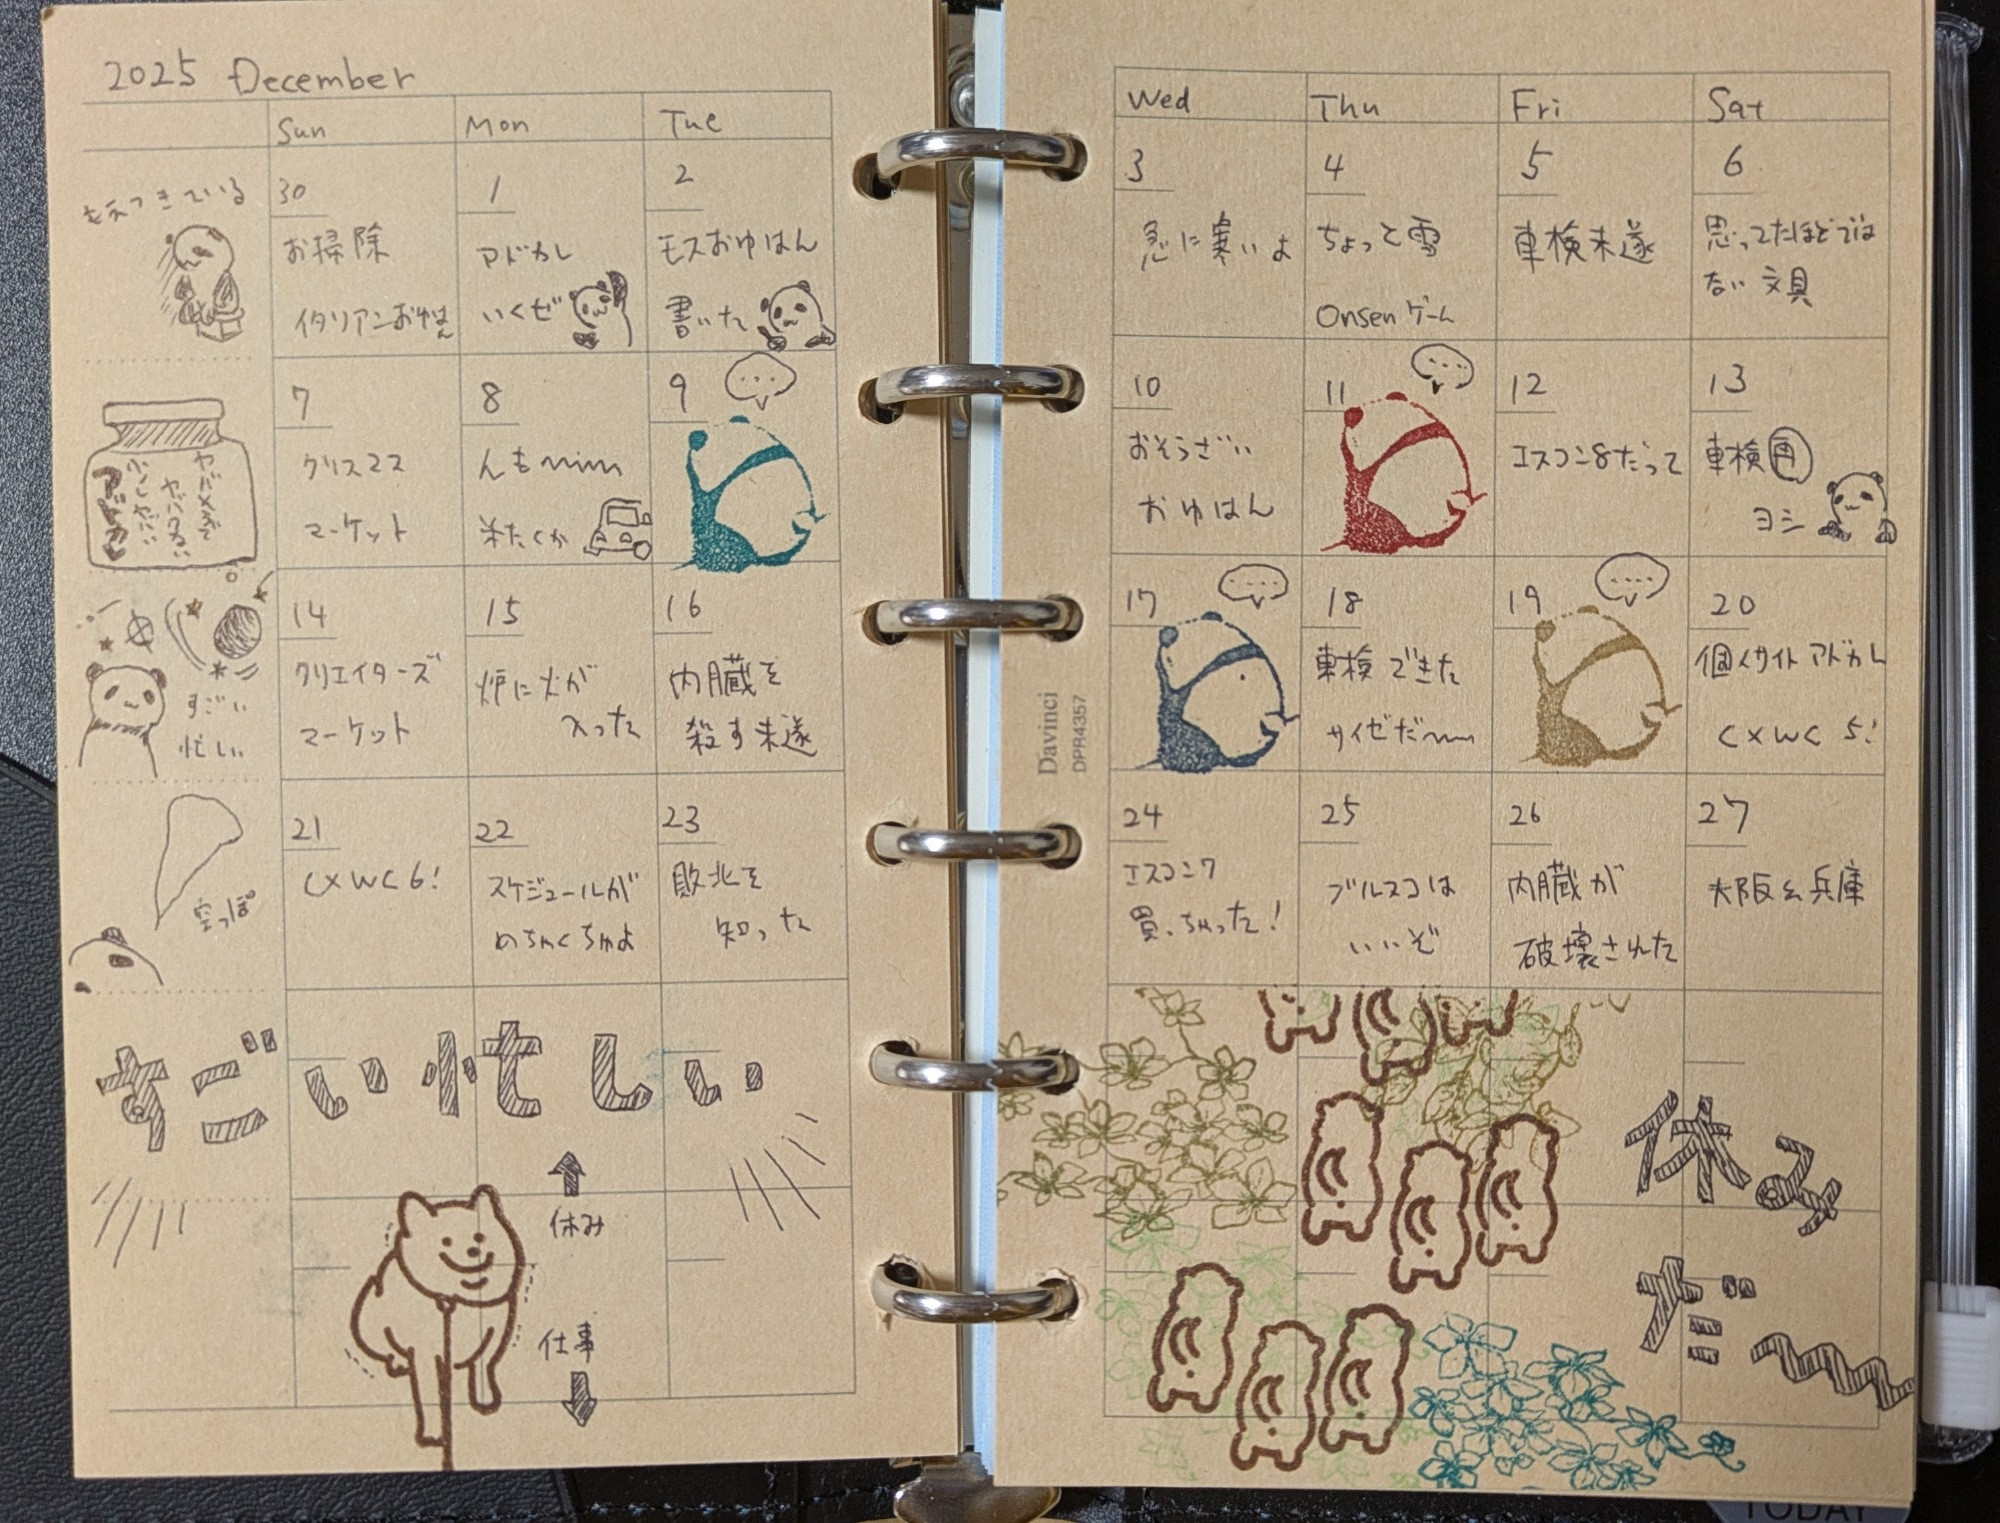 2025 December
Sun Mon Tue Wed Thu Fri Sat
燃えつきている
30
お掃除
イタリアンおゆはん
1
アドカレ
いくぜ
2
モスおゆはん
書いた
3
急に寒いよ
4
ちょっと雪
Onsen ゲーム
5
車検未遂
6
思ってたほどでは
ない文具
アドカレ
ヤバい
7
クリスマス
マーケット
8
んも〜〜
来たくか
9
...
10
おそうざい
おゆはん
11
...
12
エスコン8だって
13
車検再
ヨシ
すごい
忙しい
14
クリエイターズ
マーケット
15
炉に火が
入った
16
内臓を
殺す未遂
17
...
18
車検できた
サイゼだ〜〜
19
...
20
個人サイトアドカレ
CXWC 5!
空っぽ
21
CXWC 6!
22
スケジュールが
めちゃくちゃよ
23
敗北を
知った
24
エスコン7
買っちゃった!
25
ブルスコは
いいぞ
26
内臓が
破壊された
27
大阪&兵庫
すごい忙しい
休み
仕事
休み
だ〜
Davinci
DPR4357
TODAY